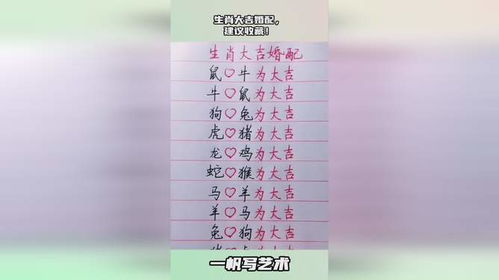 生肖大吉婚配,
建议收藏!
生肖大吉婚配
鼠♡牛为大吉
牛♡鼠为大吉
狗♡兔为大吉
虎♡猪为大吉
龙♡鸡为大吉
蛇♡猴为大吉
马♡羊为大吉
羊♡马为大吉
兔♡狗为大吉
一帆写艺术